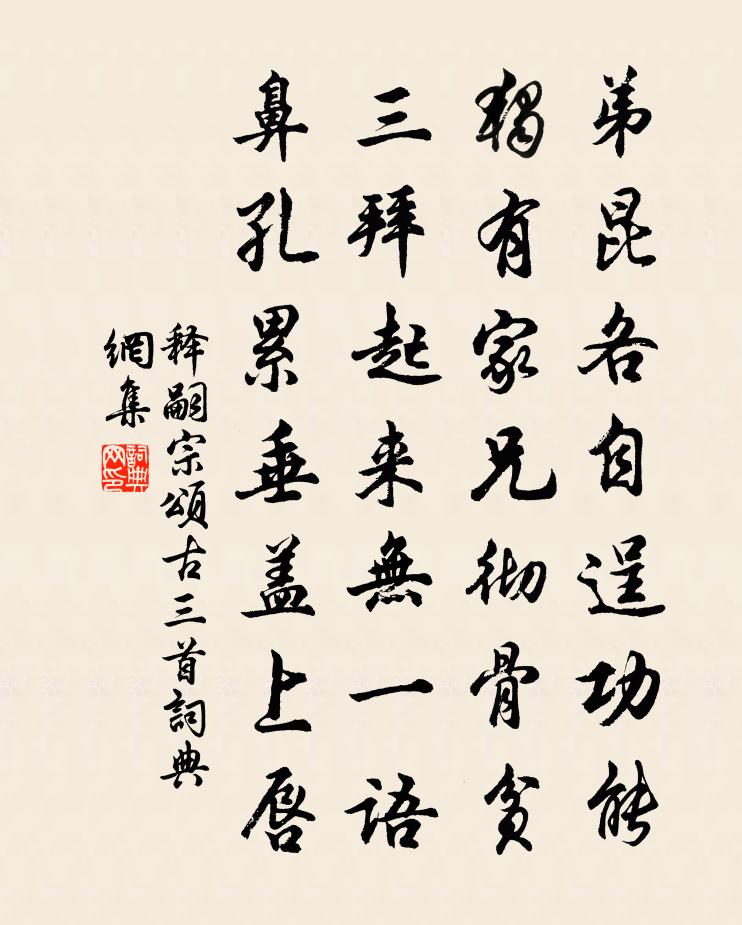 弟昆各自逞功能
獨有家兄彻骨貧
三拜起来無一語
鼻孔累垂盖上唇
释嗣宗頌古三首詞典
網集
詞典
网印